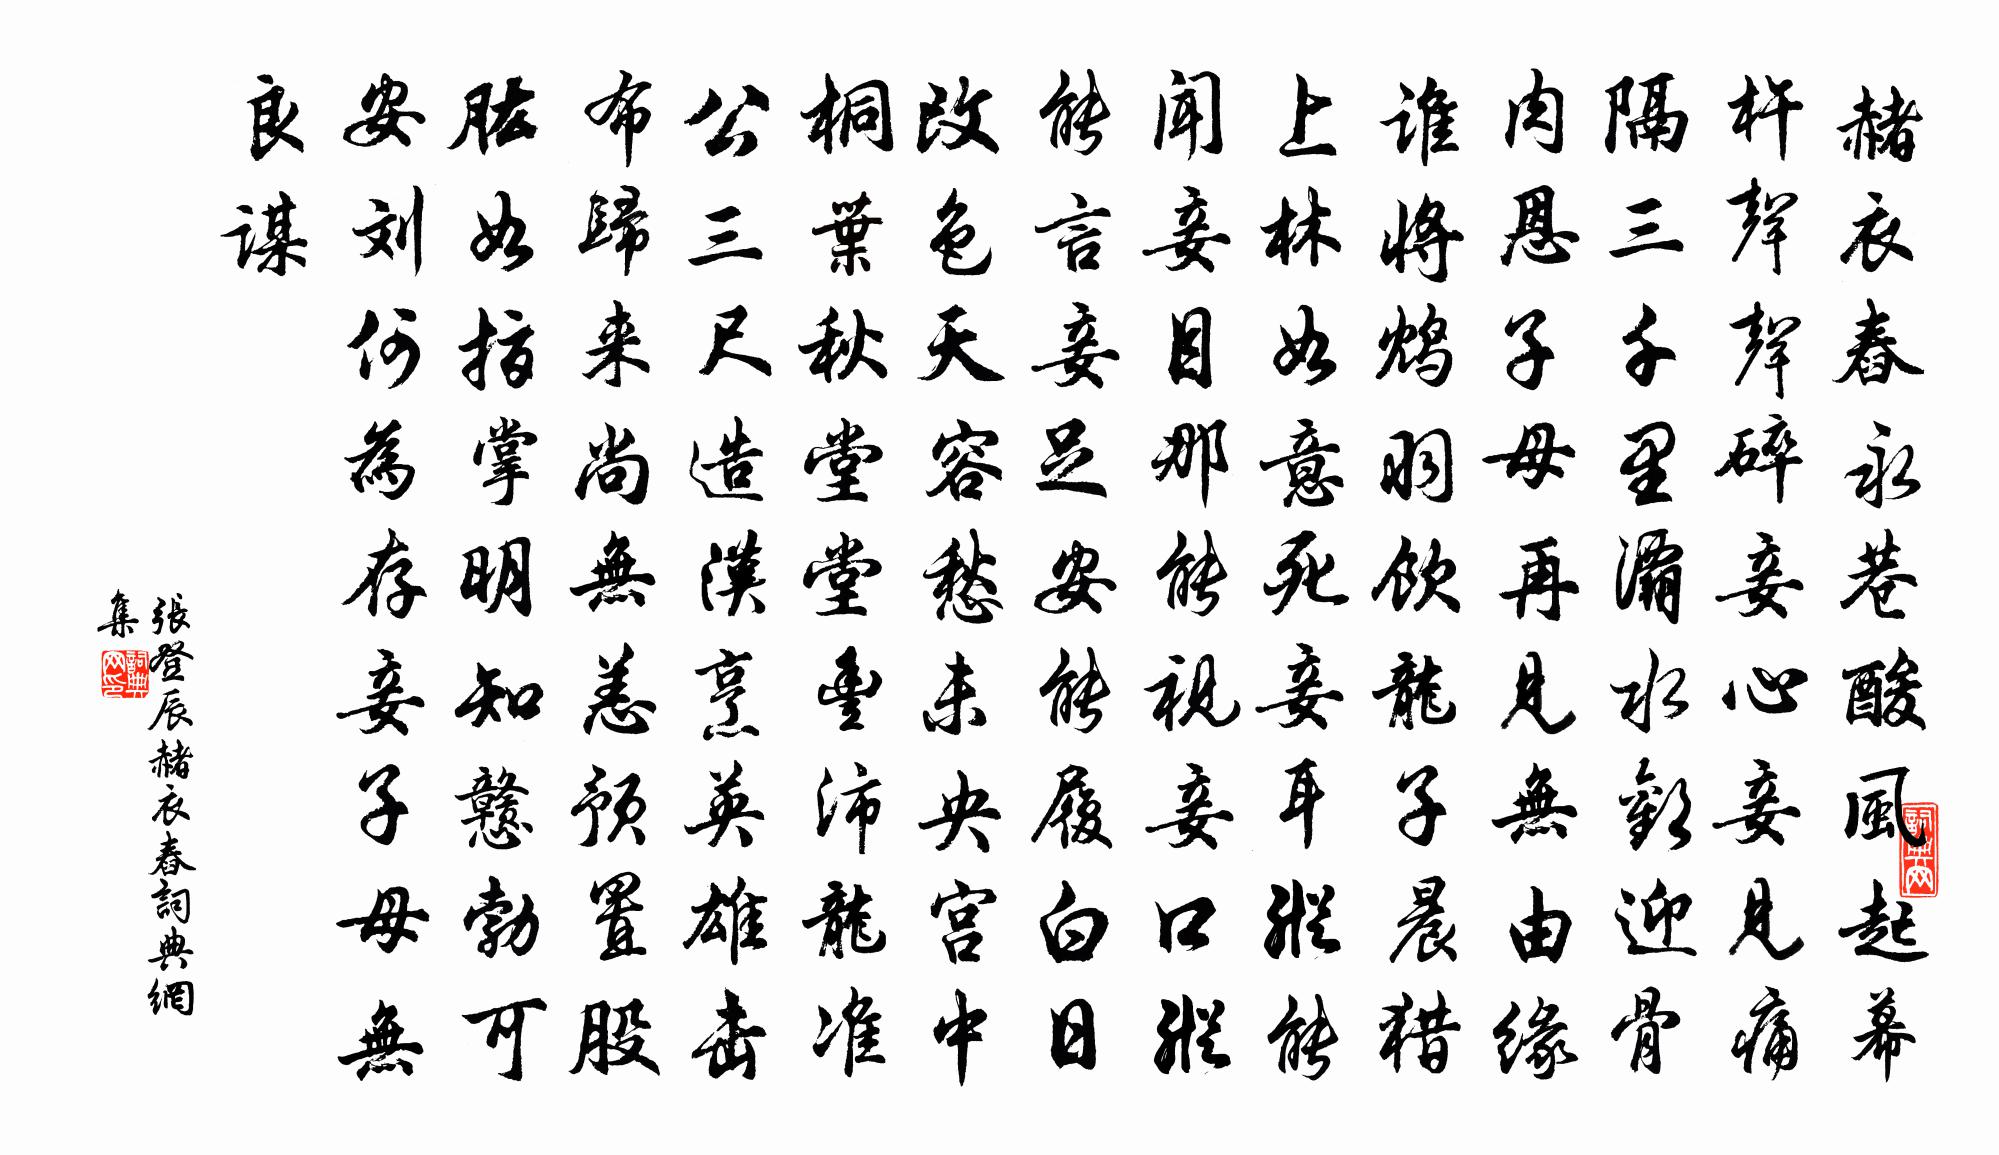 赭衣舂永巷酸風起幕
杵聲聲碎妾心妾見痛
隔三千里灞水歡迎骨
肉恩子母再見無由緣
誰將鴆羽飲龍子晨猎
上林如意死妾耳縱能
聞妾目那能視妾口縱
能言妾足安能履白日
改色天容愁未央宮中
桐葉秋堂堂豐沛龍准
公三尺造漢烹英雄击
布歸来尚無恙预置股
肱如指掌明知戇勃可
安刘何為存妾子母無
良謀
張登辰赭衣舂詞典網
集
詞典网印
詞典网